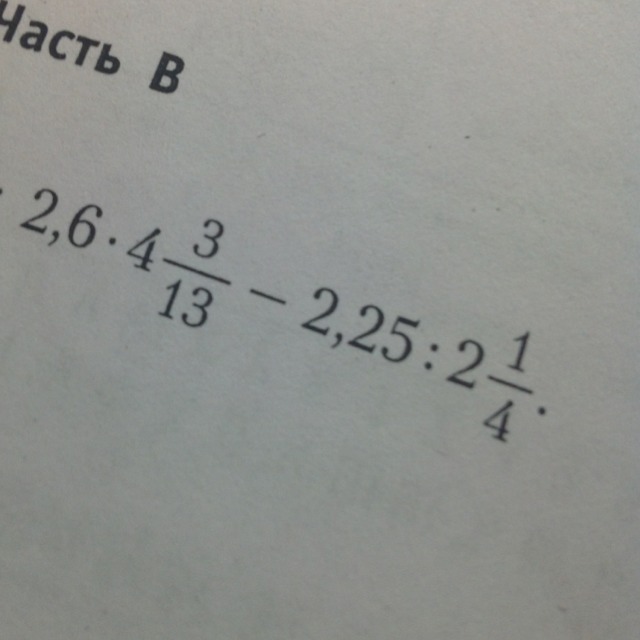 Часть В
2,6 · 4 3/13 − 2,25 : 2 1/4.